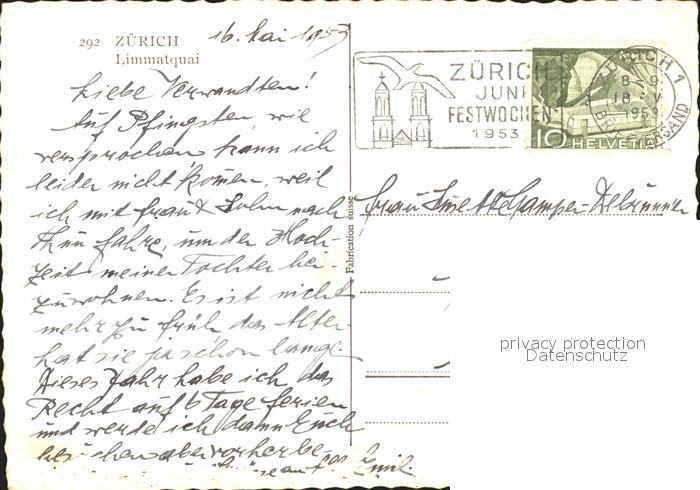 292 ZÜRICH
Limmatquai
16. Mai 1953
Liebe Verwandten!
Auf Pfingsten, wie
versprochen kann ich
leider nicht komen, weil
ich mit Frau & Sohn nach
Thun fahre, um der Hoch-
zeit meiner Tochter bei-
zuwohnen. Es ist nicht
mehr zu früh das Alter
hat sie ja schon lange.
Dieses Jahr habe ich das
Recht auf 6 Tage Ferien
und werde ich dann Euch
besuchen aber vorher be-
Emil.
Fabrication suisse
ZÜRICH
JUNI
FESTWOCHEN
1953
ZÜRICH 1
8-9
18
1953
BRIEFVERSAND
10 HELVETIA
Frau Gamper-Debrunner
privacy protection
Datenschutz